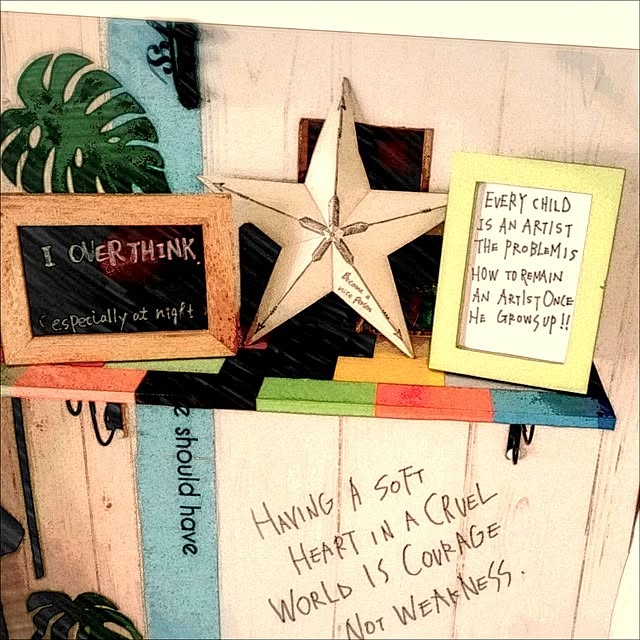 I OVERTHINK.
(especially at night
Become a
nice person
EVERY CHILD
IS AN ARTIST
THE PROBLEM IS
HOW TO REMAIN
AN ARTIST ONCE
HE GROWS UP!!
e should have
HAVING A SOFT
HEART IN A CRUEL
WORLD IS COURAGE
NOT WEAKNESS.